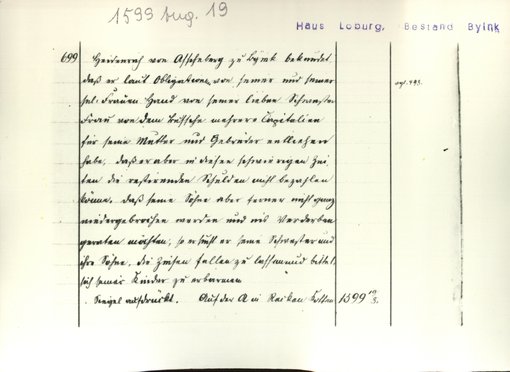 1599 Aug. 19
Haus Loburg, Bestand Byink
699 Heidenreich von Asscheberg zu Byink bekundet
daß er laut Obligationen von seiner und seiner
sel. Frauen Hand von seiner lieben Schwester
Frau von dem Büssche mehrere Capitalien
für seine Mutter und Gebrüder entliehen
habe, daß er aber in diesen schwierigen Zei-
ten die restirenden Schulden nicht bezahlen
könne, daß seine Söhne aber ferner nicht ganz
niedergebrochen werden und ins Verderben
gerathen möchten, so ersucht er seine Schwester und
ihre Söhne, die Zinsen fallen zu lassen und bittet,
sich seiner Kinder zu erbarmen
Siegel aufgedrückt. Auf der A 1599